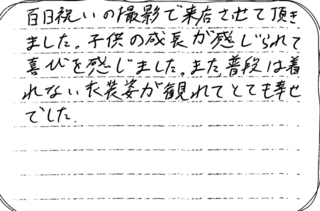 百日祝いの撮影で来店させて頂き
ました。子供の成長が感じられて
喜びを感じました。また普段は着
れない衣装姿が観れてとても幸せ
でした.